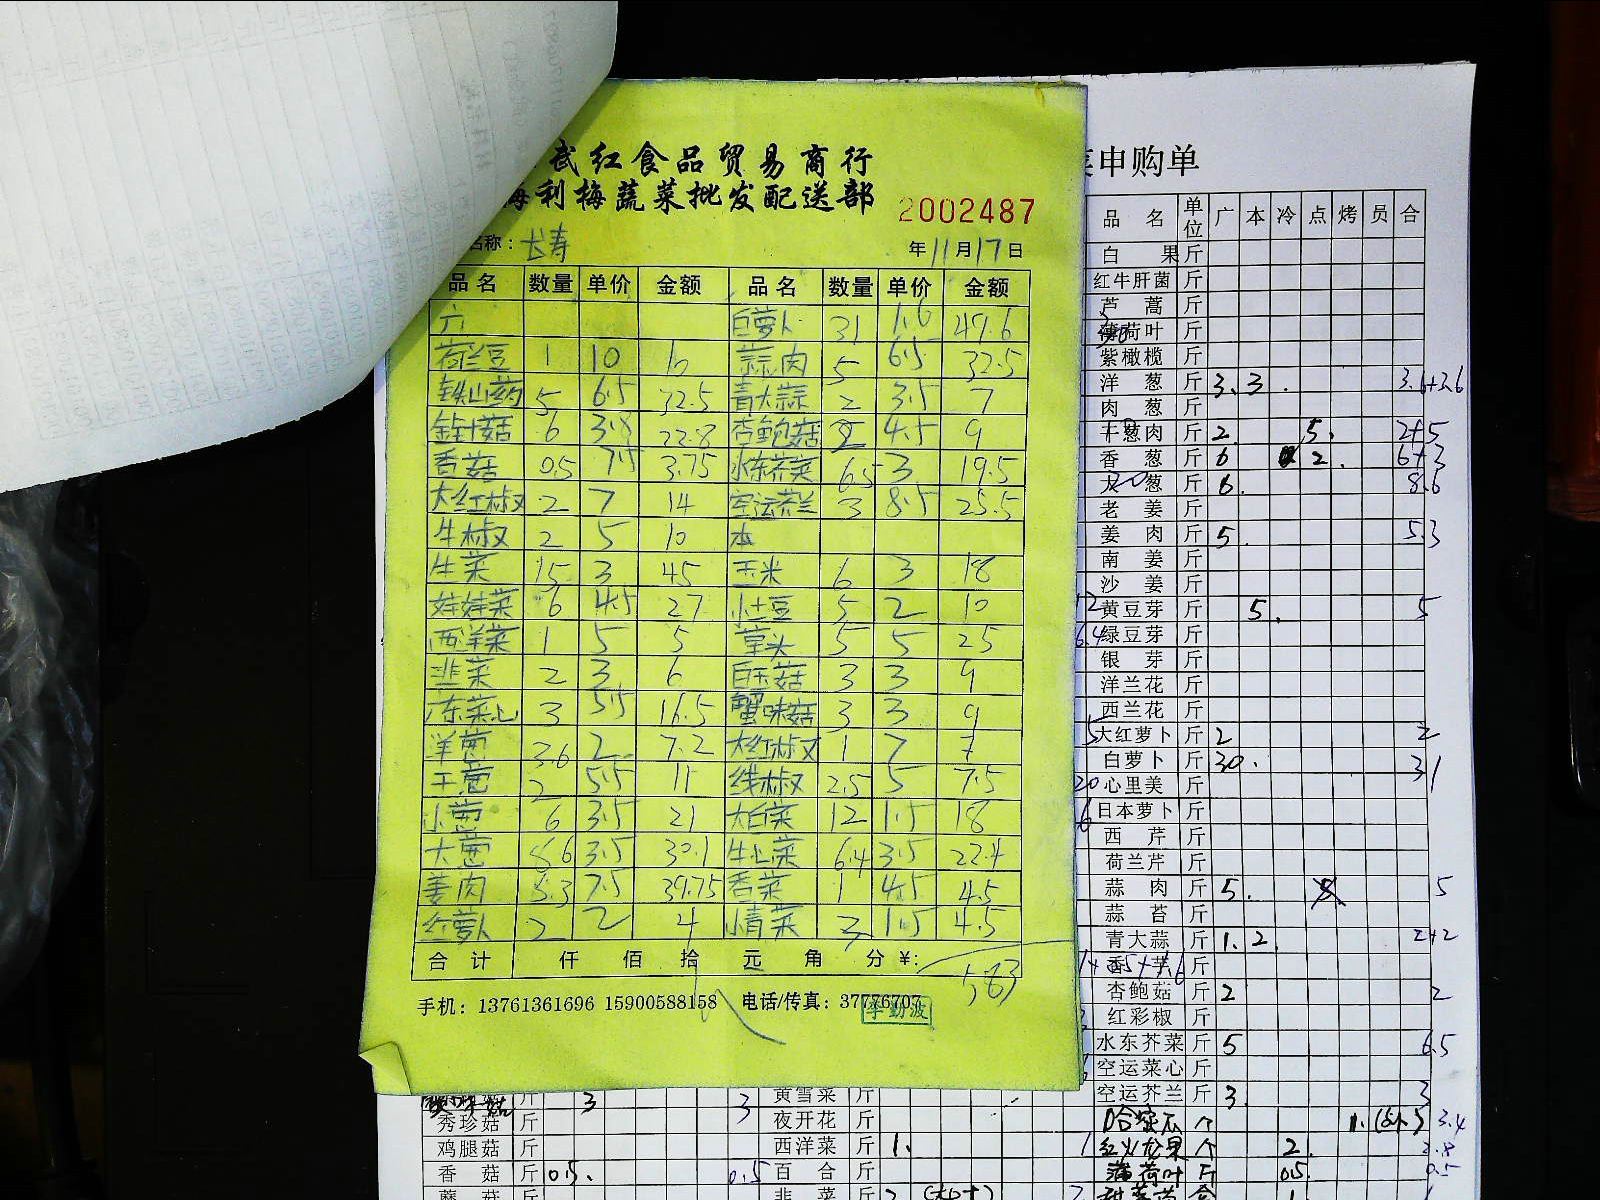 武红食品贸易商行
海利梅蔬菜批发配送部 2002487
名称：长寿 年11月17日
品名 数量 单价 金额 品名 数量 单价 金额
六 白萝卜 31 1.6 49.6
荷兰豆 1 10 10 蒜肉 5 6.5 32.5
铁山药 5 6.5 32.5 青大蒜 2 3.5 7
金针菇 6 3.8 22.8 杏鲍菇 2 4.5 9
香菇 0.5 7.5 3.75 水东芥菜 6.5 3 19.5
大红椒 2 7 14 空运芥兰 3 8.5 25.5
牛椒 2 5 10 本
生菜 15 3 45 玉米 6 3 18
娃娃菜 6 4.5 27 小土豆 5 2 10
西洋菜 1 5 5 草头 5 5 25
韭菜 2 3 6 白玉菇 3 3 9
广东菜心 3 5.5 16.5 蟹味菇 3 3 9
洋葱 3.6 2 7.2 大红椒 1 7 7
干葱 2 5.5 11 线椒 2.5 5 7.5
小葱 6 3.5 21 大白菜 12 1.5 18
大葱 8.6 3.5 30.1 牛心菜 6.4 3.5 22.4
姜肉 5.3 7.5 39.75 香菜 1 4.5 4.5
红萝卜 2 2 4 小青菜 3 1.5 4.5
合计 仟 佰 拾 元 角 分 ¥: 583
手机：13761361696 15900588158 电话/传真：37776707
李勤波
菜申购单
品名 单位 广 本 冷 点 烤 员 合
白果 斤
红牛肝菌 斤
芦蒿 斤
薄荷叶 斤
紫橄榄 斤
洋葱 斤 3. 3. 3.6+3.6
肉葱 斤
干葱肉 斤 2 5. 2+5
香葱 斤 6 2. 6+3
大葱 斤 6. 8.6
老姜 斤
姜肉 斤 5. 5.3
南姜 斤
沙姜 斤
黄豆芽 斤 5. 5
绿豆芽 斤
银芽 斤
洋兰花 斤
西兰花 斤
大红萝卜 斤 2 2
白萝卜 斤 30. 31
心里美 斤
日本萝卜 斤
西芹 斤
荷兰芹 斤
蒜肉 斤 5. 5
蒜苔 斤
青大蒜 斤 1. 2. 2+2
香芋 斤
杏鲍菇 斤 2 2
红彩椒 斤
水东芥菜 斤 5 6.5
空运菜心 斤
空运芥兰 斤 3. 3
斤 3 3 黄雪菜 斤
哈蜜瓜 个 1. 3.4
秀珍菇 斤 夜开花 斤
红火龙果 个 2. 2.8
鸡腿菇 斤 西洋菜 斤 1. 1
薄荷叶 斤 0.5 0.5
香菇 斤 0.5. 0.5 百合 斤
韭菜 斤 2